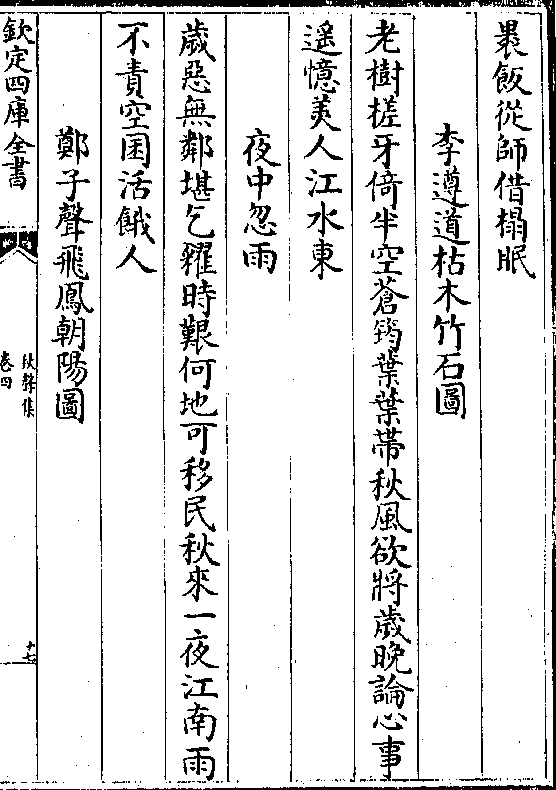 褁飯從師借榻眠
李遵道枯木竹石圖
老樹槎牙倚半空蒼筠葉葉帶秋風欲將歲晚論心事
遥憶美人江水東
夜中忽雨
歲惡無鄰堪乞糴時艱何地可移民秋來一夜江南雨
不責空囷活餓人
鄭子聲飛鳳朝陽圖
欽定四庫全書
秋聲集
卷四
十七